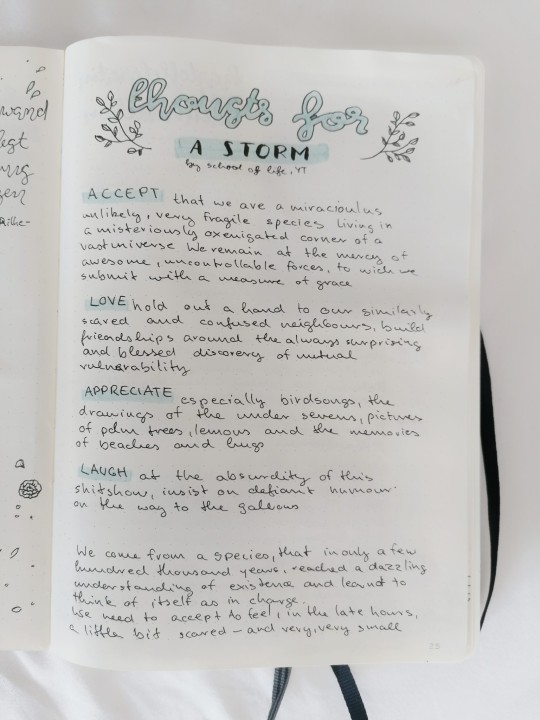 wand
legt
ung
Rilke-
thougts for
A STORM
by school of life, YT
ACCEPT that we are a miraciulus
unlikely, very fragile species living in
a misteriously oxenigated corner of a
vast universe We remain at the mercy of
awesome, uncontrollable forces, to wich we
submit with a measure of grace
LOVE hold out a hand to our similarly
scared and confused neighbours, build
friendships around the always surprising
and blessed discovery of mutual
vulnerability
APPRECIATE especially birdsongs, the
drawings of the under sevens, pictures
of palm trees, lemons and the memories
of beaches and hugs
LAUGH at the absurdity of this
shitshow, insist on defiant humour
on the way to the galeous
We come from a species, that in only a few
hundred thousand years, reached a dazzling
understanding of existence and learnt to
think of itself as in charge.
We need to accept to feel, in the late hours,
a little bit scared – and very, very small